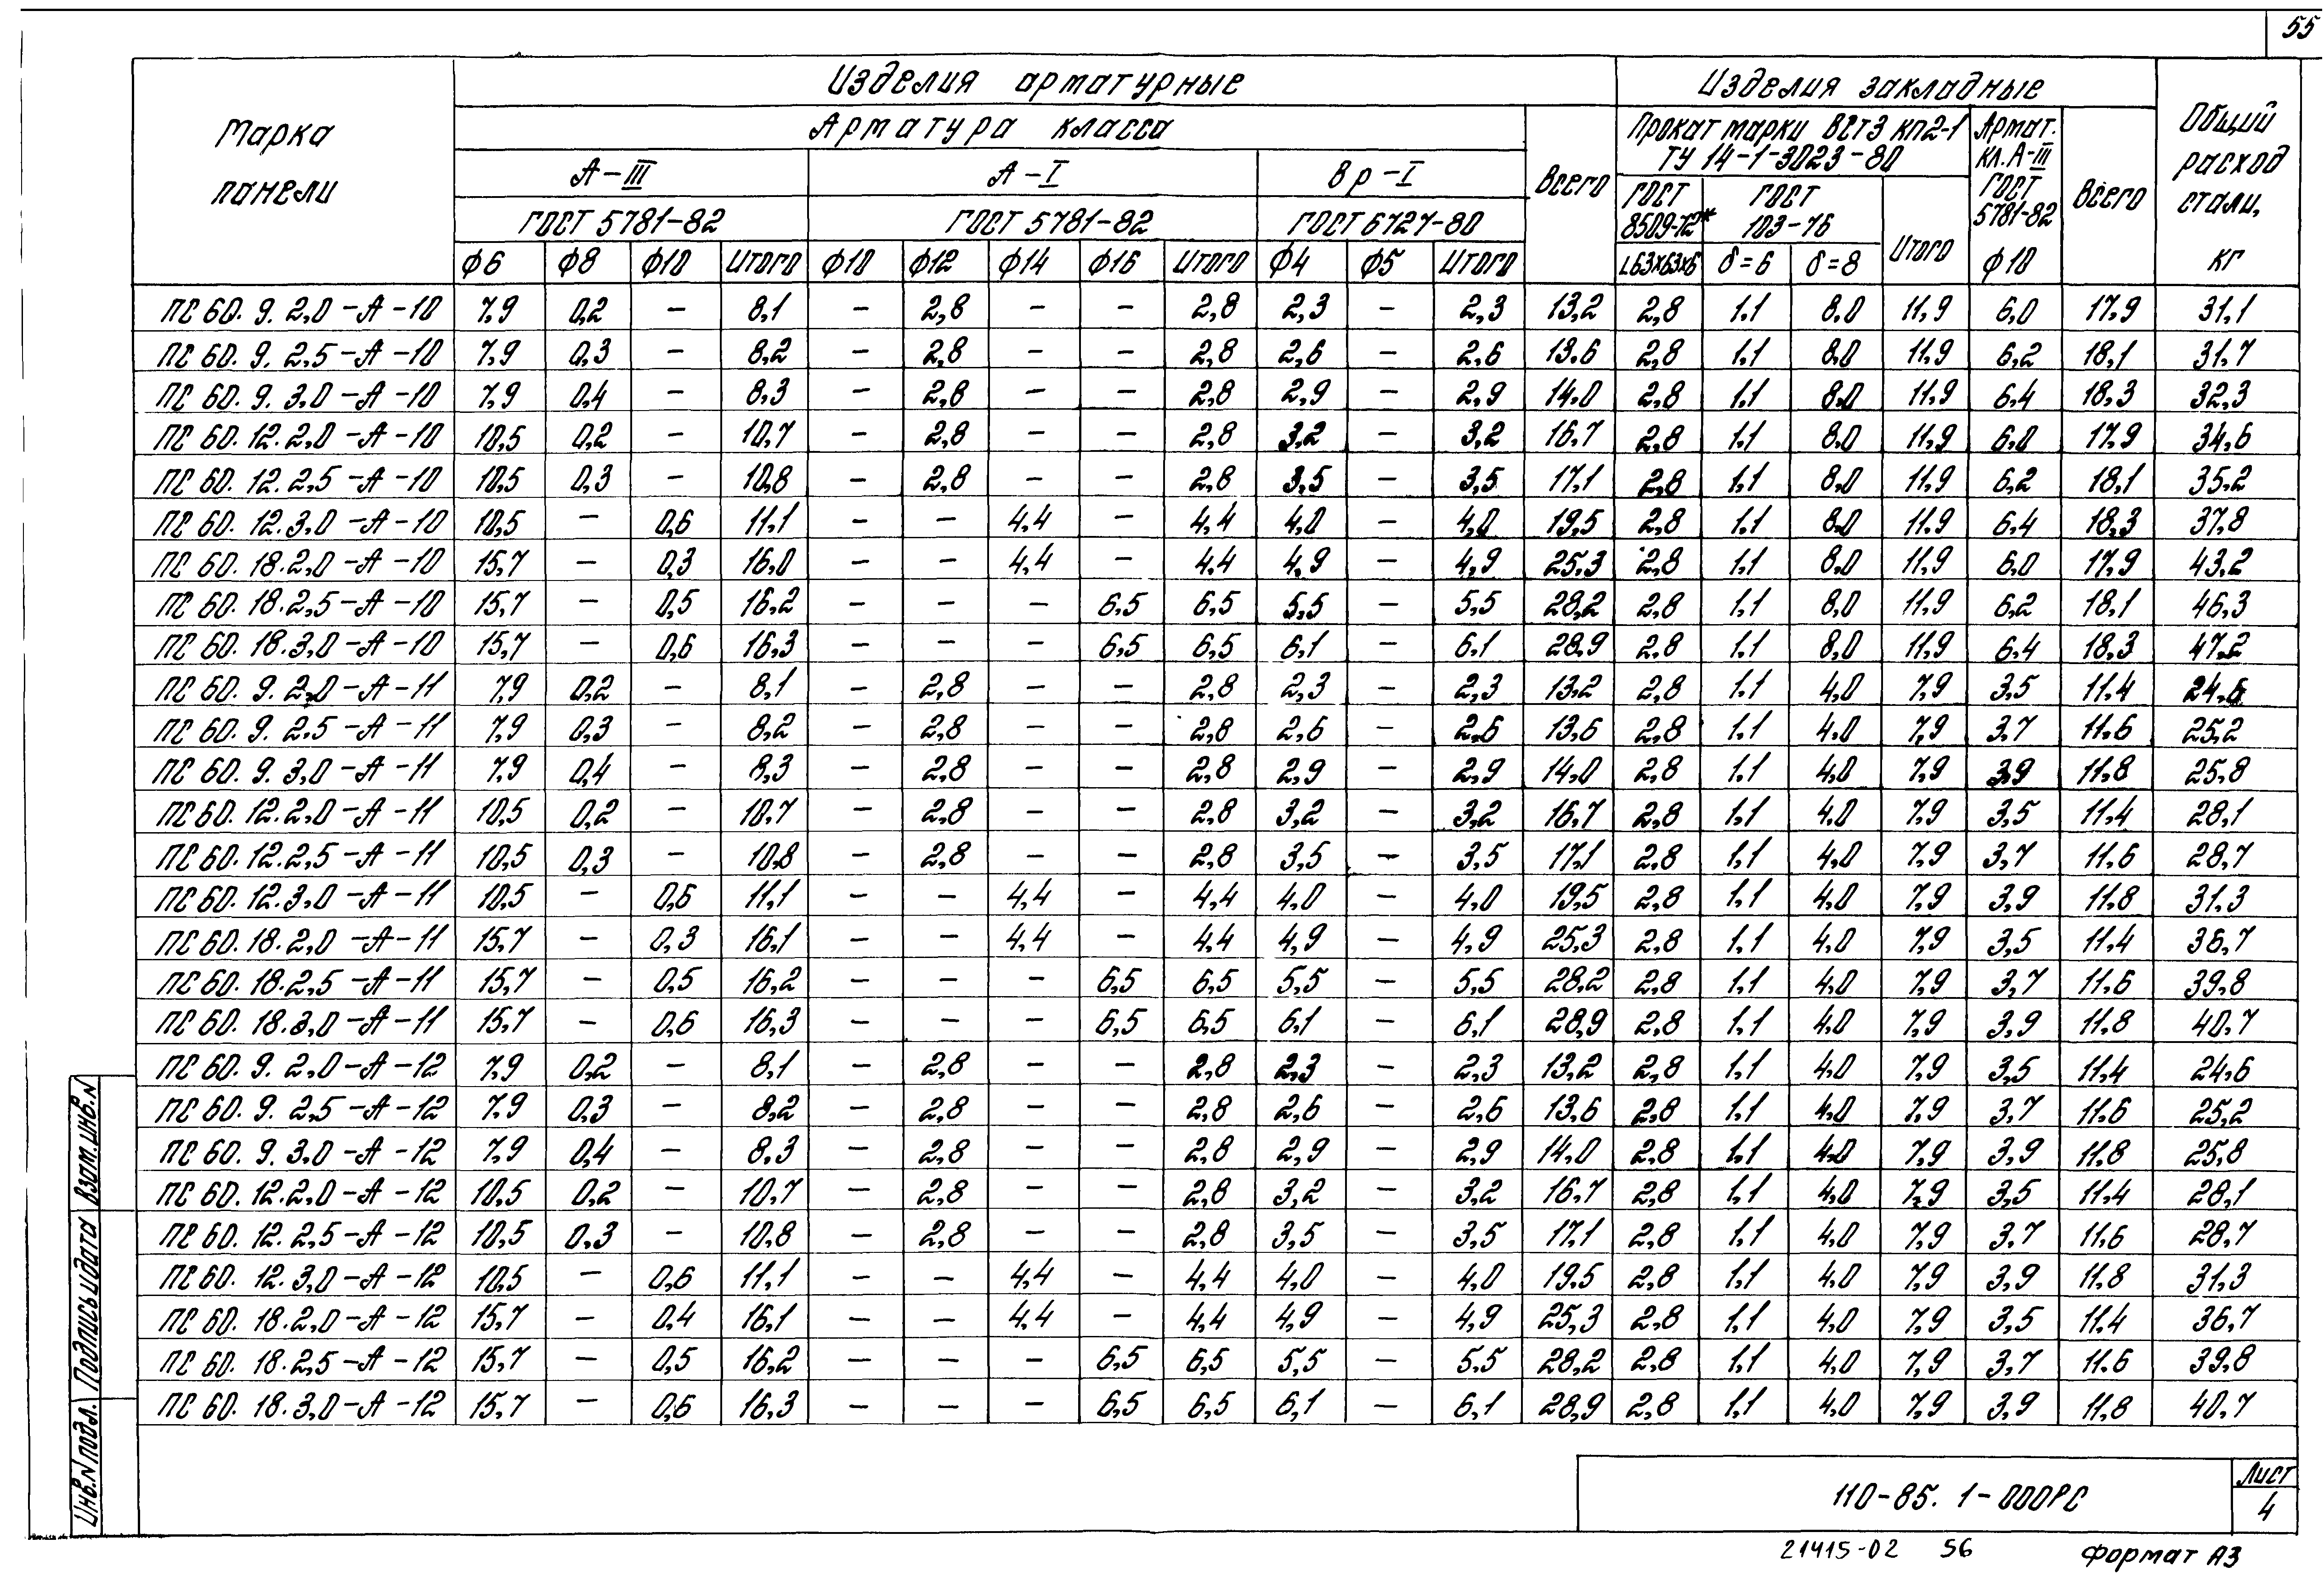 55
Марка панели
Изделия арматурные
Изделия закладные
Общий расход стали, кг
Арматура класса
Всего
Прокат марки ВСт3 кп2-1 ТУ 14-1-3023-80
Армат. кл. А-III ГОСТ 5781-82
Всего
А-III
А-I
Вр-I
ГОСТ 5781-82
ГОСТ 5781-82
ГОСТ 6727-80
ГОСТ 8509-72*
ГОСТ 103-76
Итого
ф6 ф8 ф10 Итого ф10 ф12 ф14 ф16 Итого ф4 ф5 Итого L63х63х6 δ=6 δ=8 ф10
ПС 60.9.2,0-А-10 7,9 0,2 – 8,1 – 2,8 – – 2,8 2,3 – 2,3 13,2 2,8 1,1 8,0 11,9 6,0 17,9 31,1
ПС 60.9.2,5-А-10 7,9 0,3 – 8,2 – 2,8 – – 2,8 2,6 – 2,6 13,6 2,8 1,1 8,0 11,9 6,2 18,1 31,7
ПС 60.9.3,0-А-10 7,9 0,4 – 8,3 – 2,8 – – 2,8 2,9 – 2,9 14,0 2,8 1,1 8,0 11,9 6,4 18,3 32,3
ПС 60.12.2,0-А-10 10,5 0,2 – 10,7 – 2,8 – – 2,8 3,2 – 3,2 16,7 2,8 1,1 8,0 11,9 6,0 17,9 34,6
ПС 60.12.2,5-А-10 10,5 0,3 – 10,8 – 2,8 – – 2,8 3,5 – 3,5 17,1 2,8 1,1 8,0 11,9 6,2 18,1 35,2
ПС 60.12.3,0-А-10 10,5 – 0,6 11,1 – – 4,4 – 4,4 4,0 – 4,0 19,5 2,8 1,1 8,0 11,9 6,4 18,3 37,8
ПС 60.18.2,0-А-10 15,7 – 0,3 16,0 – – 4,4 – 4,4 4,9 – 4,9 25,3 2,8 1,1 8,0 11,9 6,0 17,9 43,2
ПС 60.18.2,5-А-10 15,7 – 0,5 16,2 – – – 6,5 6,5 5,5 – 5,5 28,2 2,8 1,1 8,0 11,9 6,2 18,1 46,3
ПС 60.18.3,0-А-10 15,7 – 0,6 16,3 – – – 6,5 6,5 6,1 – 6,1 28,9 2,8 1,1 8,0 11,9 6,4 18,3 47,2
ПС 60.9.2,0-А-11 7,9 0,2 – 8,1 – 2,8 – – 2,8 2,3 – 2,3 13,2 2,8 1,1 4,0 7,9 3,5 11,4 24,6
ПС 60.9.2,5-А-11 7,9 0,3 – 8,2 – 2,8 – – 2,8 2,6 – 2,6 13,6 2,8 1,1 4,0 7,9 3,7 11,6 25,2
ПС 60.9.3,0-А-11 7,9 0,4 – 8,3 – 2,8 – – 2,8 2,9 – 2,9 14,0 2,8 1,1 4,0 7,9 3,9 11,8 25,8
ПС 60.12.2,0-А-11 10,5 0,2 – 10,7 – 2,8 – – 2,8 3,2 – 3,2 16,7 2,8 1,1 4,0 7,9 3,5 11,4 28,1
ПС 60.12.2,5-А-11 10,5 0,3 – 10,8 – 2,8 – – 2,8 3,5 – 3,5 17,1 2,8 1,1 4,0 7,9 3,7 11,6 28,7
ПС 60.12.3,0-А-11 10,5 – 0,6 11,1 – – 4,4 – 4,4 4,0 – 4,0 19,5 2,8 1,1 4,0 7,9 3,9 11,8 31,3
ПС 60.18.2,0-А-11 15,7 – 0,3 16,1 – – 4,4 – 4,4 4,9 – 4,9 25,3 2,8 1,1 4,0 7,9 3,5 11,4 36,7
ПС 60.18.2,5-А-11 15,7 – 0,5 16,2 – – – 6,5 6,5 5,5 – 5,5 28,2 2,8 1,1 4,0 7,9 3,7 11,6 39,8
ПС 60.18.3,0-А-11 15,7 – 0,6 16,3 – – – 6,5 6,5 6,1 – 6,1 28,9 2,8 1,1 4,0 7,9 3,9 11,8 40,7
ПС 60.9.2,0-А-12 7,9 0,2 – 8,1 – 2,8 – – 2,8 2,3 – 2,3 13,2 2,8 1,1 4,0 7,9 3,5 11,4 24,6
ПС 60.9.2,5-А-12 7,9 0,3 – 8,2 – 2,8 – – 2,8 2,6 – 2,6 13,6 2,8 1,1 4,0 7,9 3,7 11,6 25,2
ПС 60.9.3,0-А-12 7,9 0,4 – 8,3 – 2,8 – – 2,8 2,9 – 2,9 14,0 2,8 1,1 4,0 7,9 3,9 11,8 25,8
ПС 60.12.2,0-А-12 10,5 0,2 – 10,7 – 2,8 – – 2,8 3,2 – 3,2 16,7 2,8 1,1 4,0 7,9 3,5 11,4 28,1
ПС 60.12.2,5-А-12 10,5 0,3 – 10,8 – 2,8 – – 2,8 3,5 – 3,5 17,1 2,8 1,1 4,0 7,9 3,7 11,6 28,7
ПС 60.12.3,0-А-12 10,5 – 0,6 11,1 – – 4,4 – 4,4 4,0 – 4,0 19,5 2,8 1,1 4,0 7,9 3,9 11,8 31,3
ПС 60.18.2,0-А-12 15,7 – 0,4 16,1 – – 4,4 – 4,4 4,9 – 4,9 25,3 2,8 1,1 4,0 7,9 3,5 11,4 36,7
ПС 60.18.2,5-А-12 15,7 – 0,5 16,2 – – – 6,5 6,5 5,5 – 5,5 28,2 2,8 1,1 4,0 7,9 3,7 11,6 39,8
ПС 60.18.3,0-А-12 15,7 – 0,6 16,3 – – – 6,5 6,5 6,1 – 6,1 28,9 2,8 1,1 4,0 7,9 3,9 11,8 40,7
Инв.N подл. Подпись и дата Взам.инв.N
110-85.1-000РС
Лист
4
21415-02 56
Формат А3